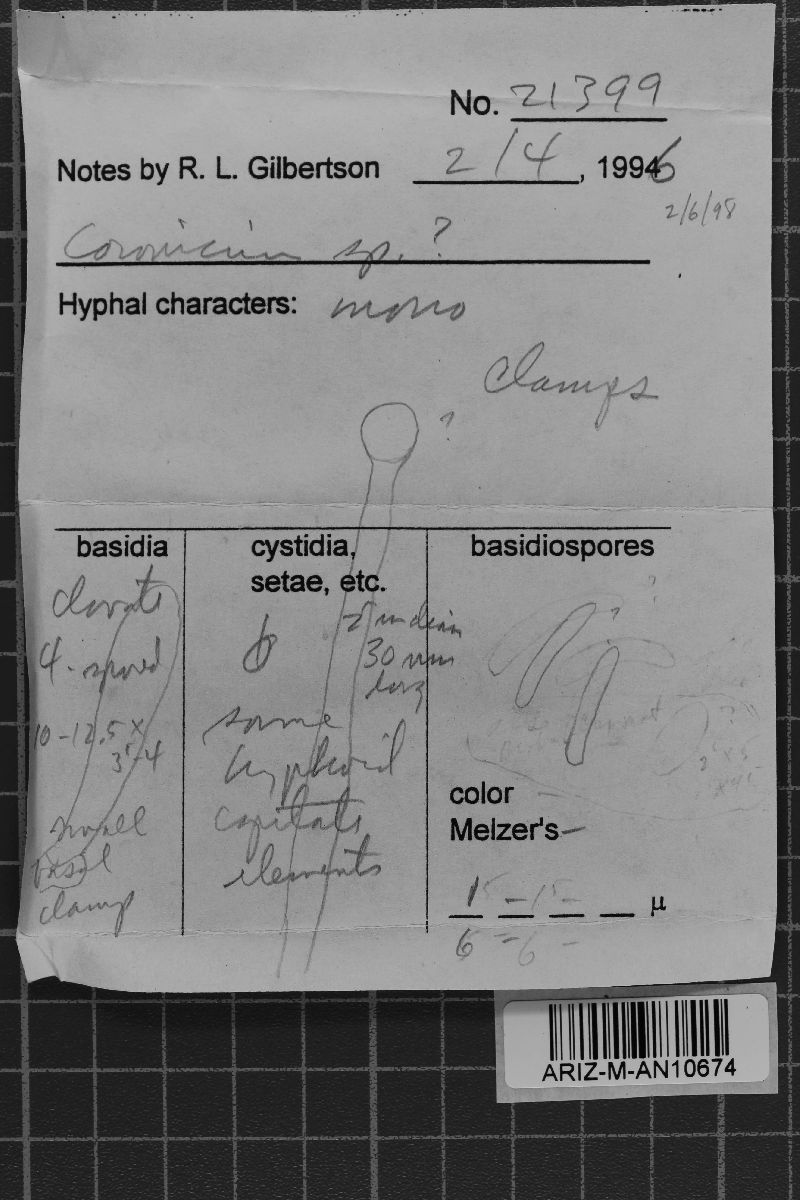 No. 21399
Notes by R. L. Gilbertson 2/4, 19946
2/6/98
sp. ?
Hyphal characters: mono
clamps
?
basidia
cystidia,
setae, etc.
basidiospores
clavate
4-spored
10-12.5 x
3-4
small
basal
clamp
30
long
some
hyphoid
capitate
elements
?
?
color
Melzer's –
15 – 15 – μ
6 – 6 –
ARIZ-M-AN10674